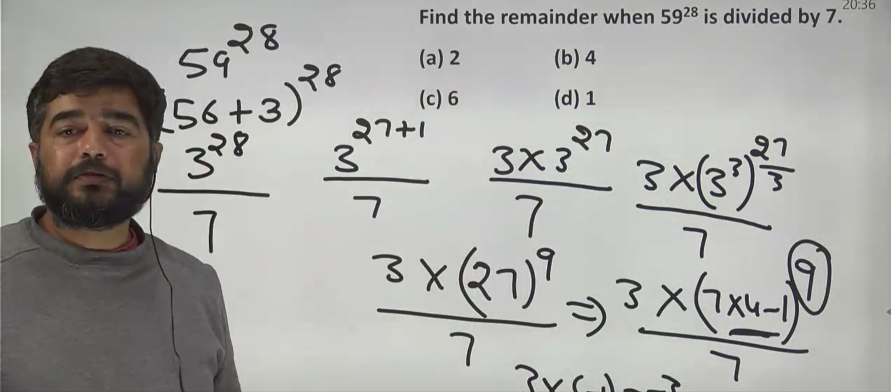 20:36
Find the remainder when 59²⁸ is divided by 7.
(a) 2 (b) 4
(c) 6 (d) 1
59²⁸
(56+3)²⁸
3²⁸/7 3²⁷⁺¹/7 3×3²⁷/7 3×(3³)^(27/3)/7
3×(27)⁹/7 ⇒ 3×(7×4-1)⁹/7